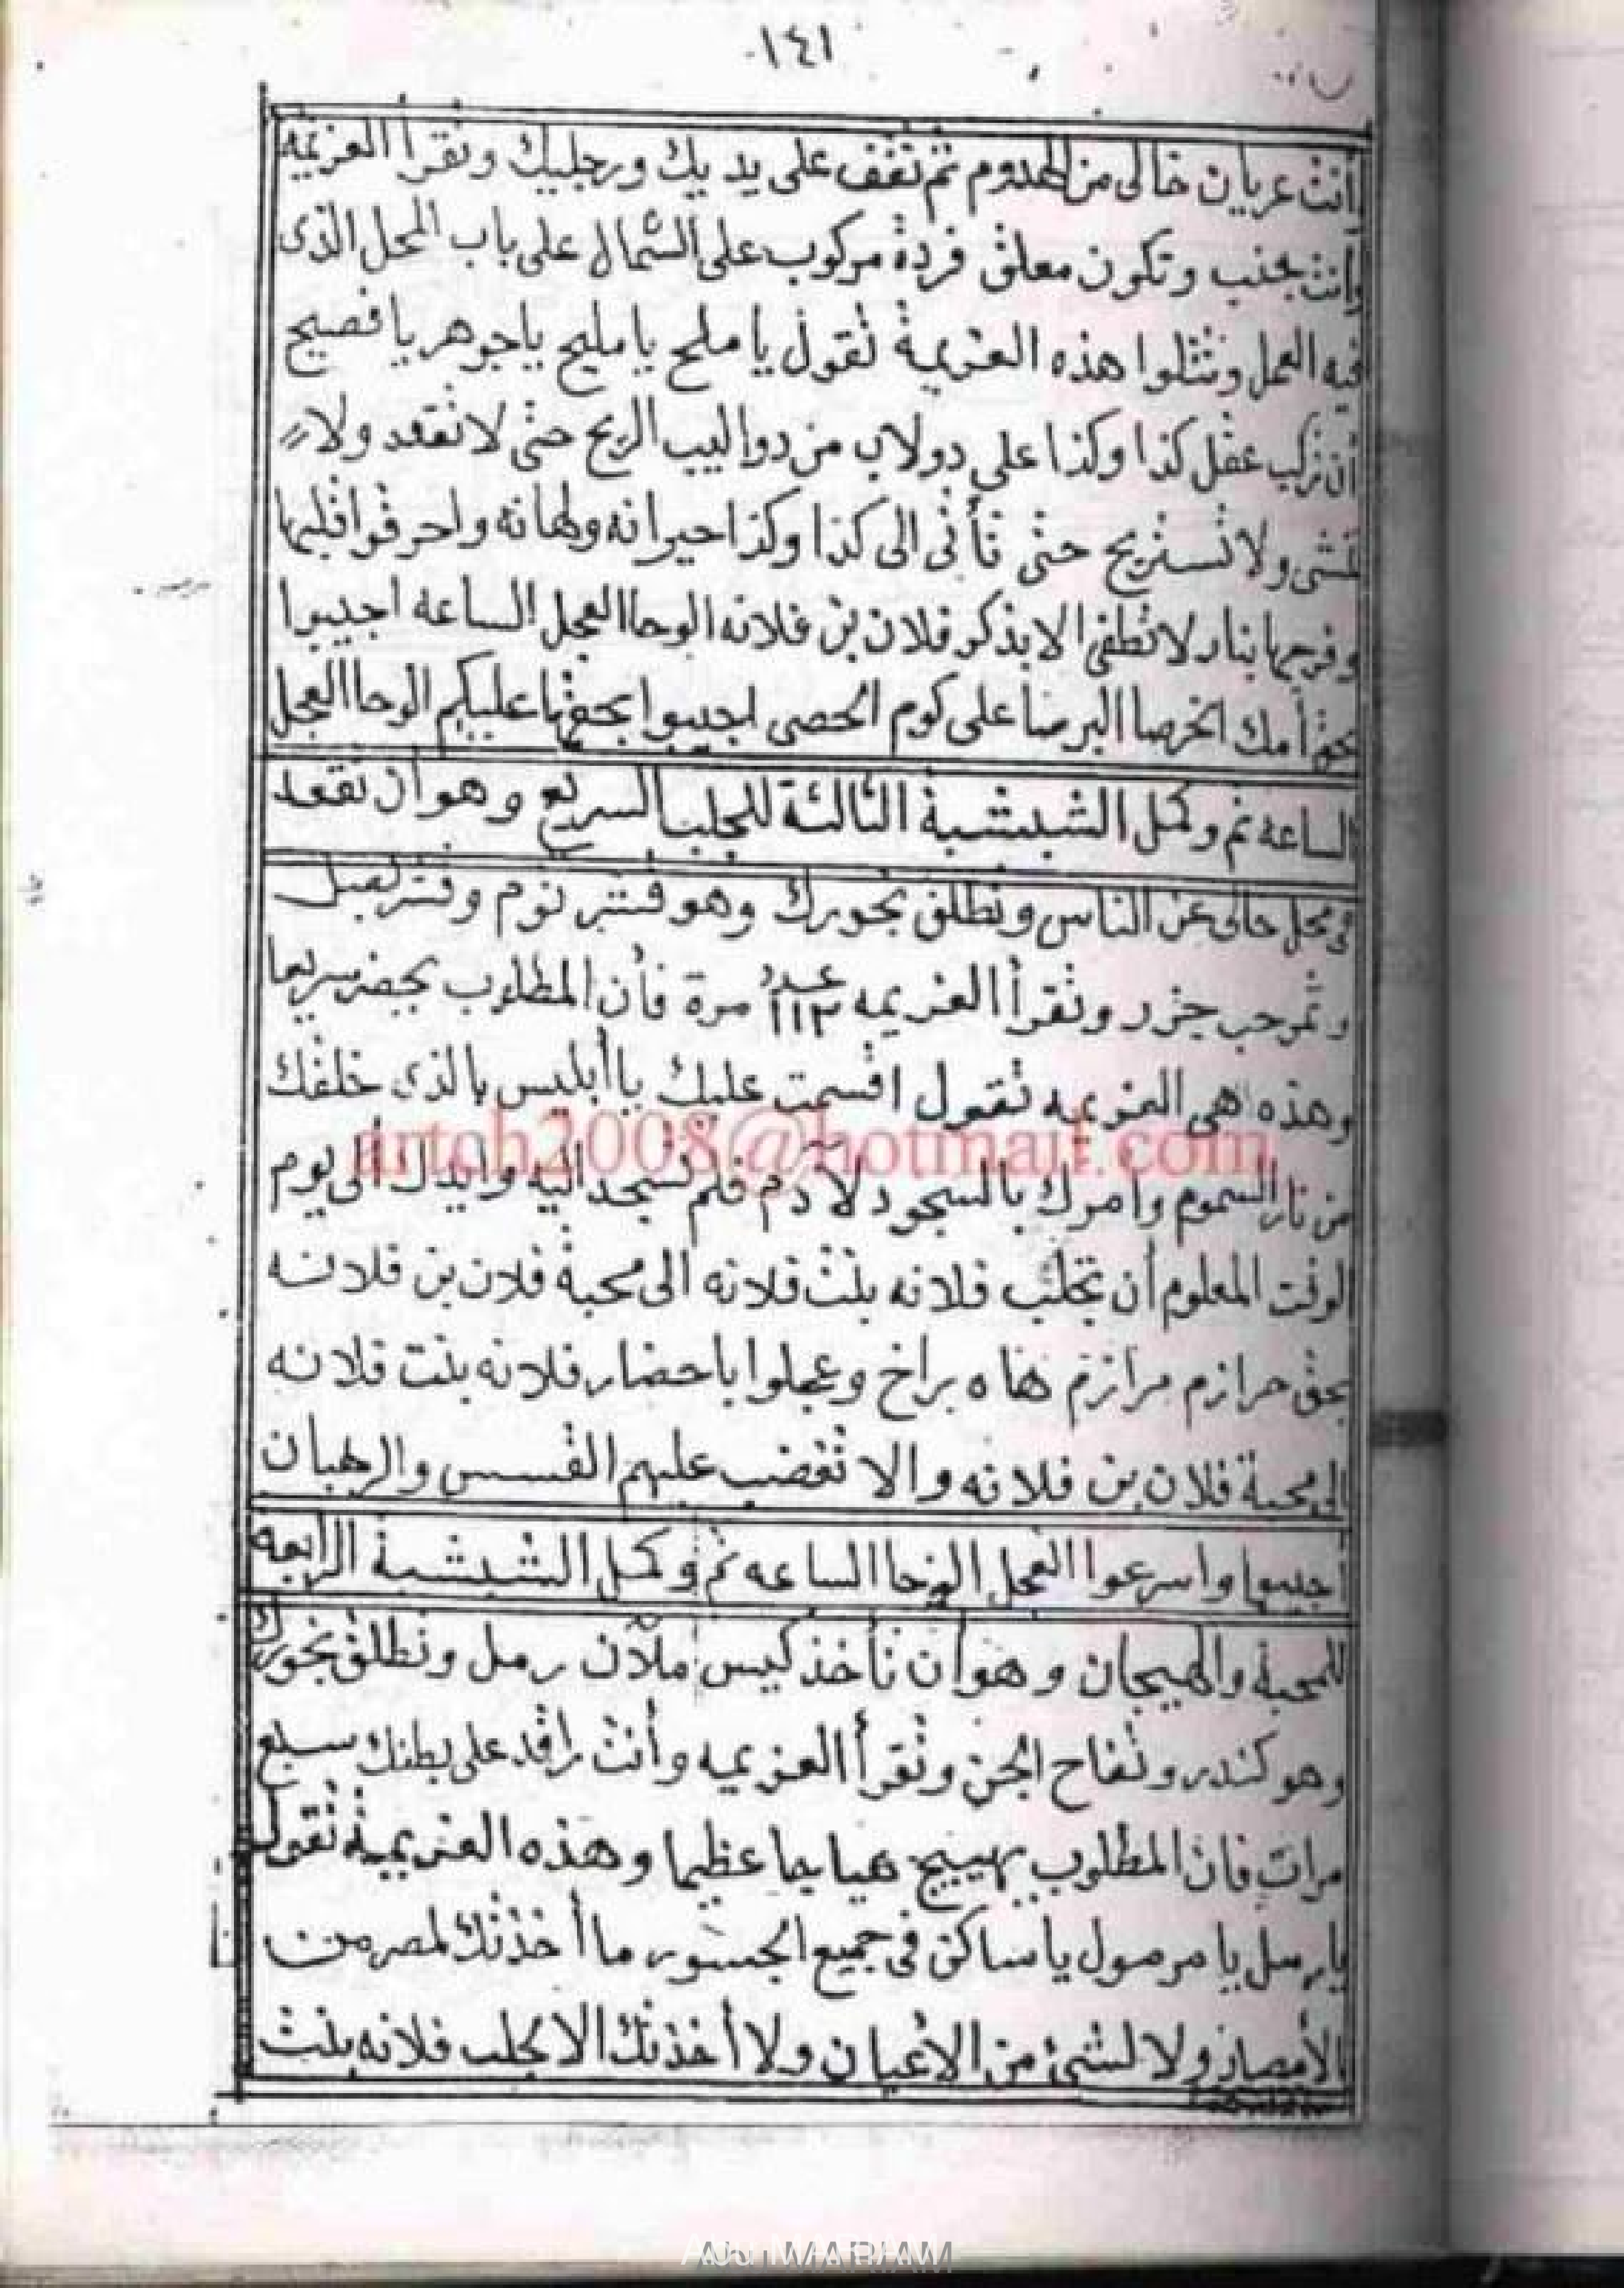 ١٤١
أنت عريان خالى من الهدوم ثم تقف على يديك ورجليك وتقرأ العزيمه
وانت بجنب وتكون معلق فردة مركوب على الشمال على باب المحل الذى
فيه العمل وتتلوا هذه العزيمة تقول يا ملح يا مليح يا جوهر يا فصيح
أن تركب عقل كذا وكذا على دولاب من دواليب الريح حتى لا تقعد ولا
تمشى ولا تستريح حتى تأتى الى كذا وكذا حيرانه ولهانه واحرقوا قلبها
وفرجها بنار لا تطفى الا بذكر فلان بن فلانه الوحا العجل الساعه اجيبوا
بحق أمك الخرصا البرصا على كوم الحصى اجيبوا بحقها عليكم الوحا العجل
الساعه تم وكمل الشبشبة الثالثة للجلب السريع وهو ان تقعد
فى محل خالى عن الناس وتطلق بخورك وهو قشر توم وقشر بصل
وتمر حب جزر وتقرأ العزيمه عدد ١١٣ مرة فأن المطلوب يحضر سريعا
وهذه هى العزيمه تقول اقسمت عليك يا أبليس بالذى خلقك
artch2008@hotmail.com
من نار السموم وأمرك بالسجود لآدم فلم تسجد اليه وايدك الى يوم
الوقت المعلوم أن تجلب فلانه بنت فلانه الى محبة فلان بن فلانه
بحق حرازم مرازم هاه براخ وعجلوا باحضار فلانه بنت فلانه
الى محبة فلان بن فلانه والا تغضب عليهم القسس والرهبان
أجيبوا واسرعوا العجل الوحا الساعه تم وكمل الشبشبة الرابعه
للمحبة والهيجان وهو أن تأخذ كيس ملآن رمل وتطلق بخورك
وهو كندر وتفاح الجن وتقرأ العزيمه وأنت راقد على بطنك سبع
مرات فان المطلوب يهييج هيايجا عظيما وهذه العزيمة تقول
يا رمل يا مرمول يا ساكن فى جميع الجسور ما أخذتك لمصر من
الأمصار ولا لشئ من الاعيان ولا أخذتك الا بجلب فلانه بنت
Abu MARIAM